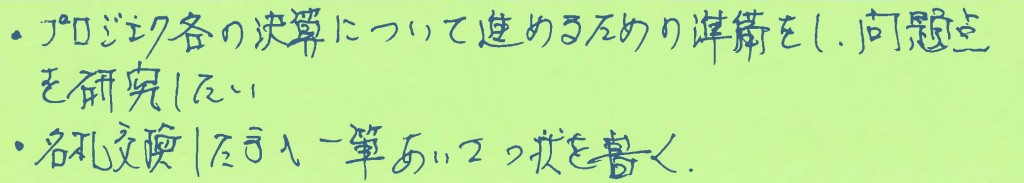 ・プロジェク各の決算について進めるための準備をし、問題点
を研究したい
・名札交換した方へ一筆あいさつ状を書く.